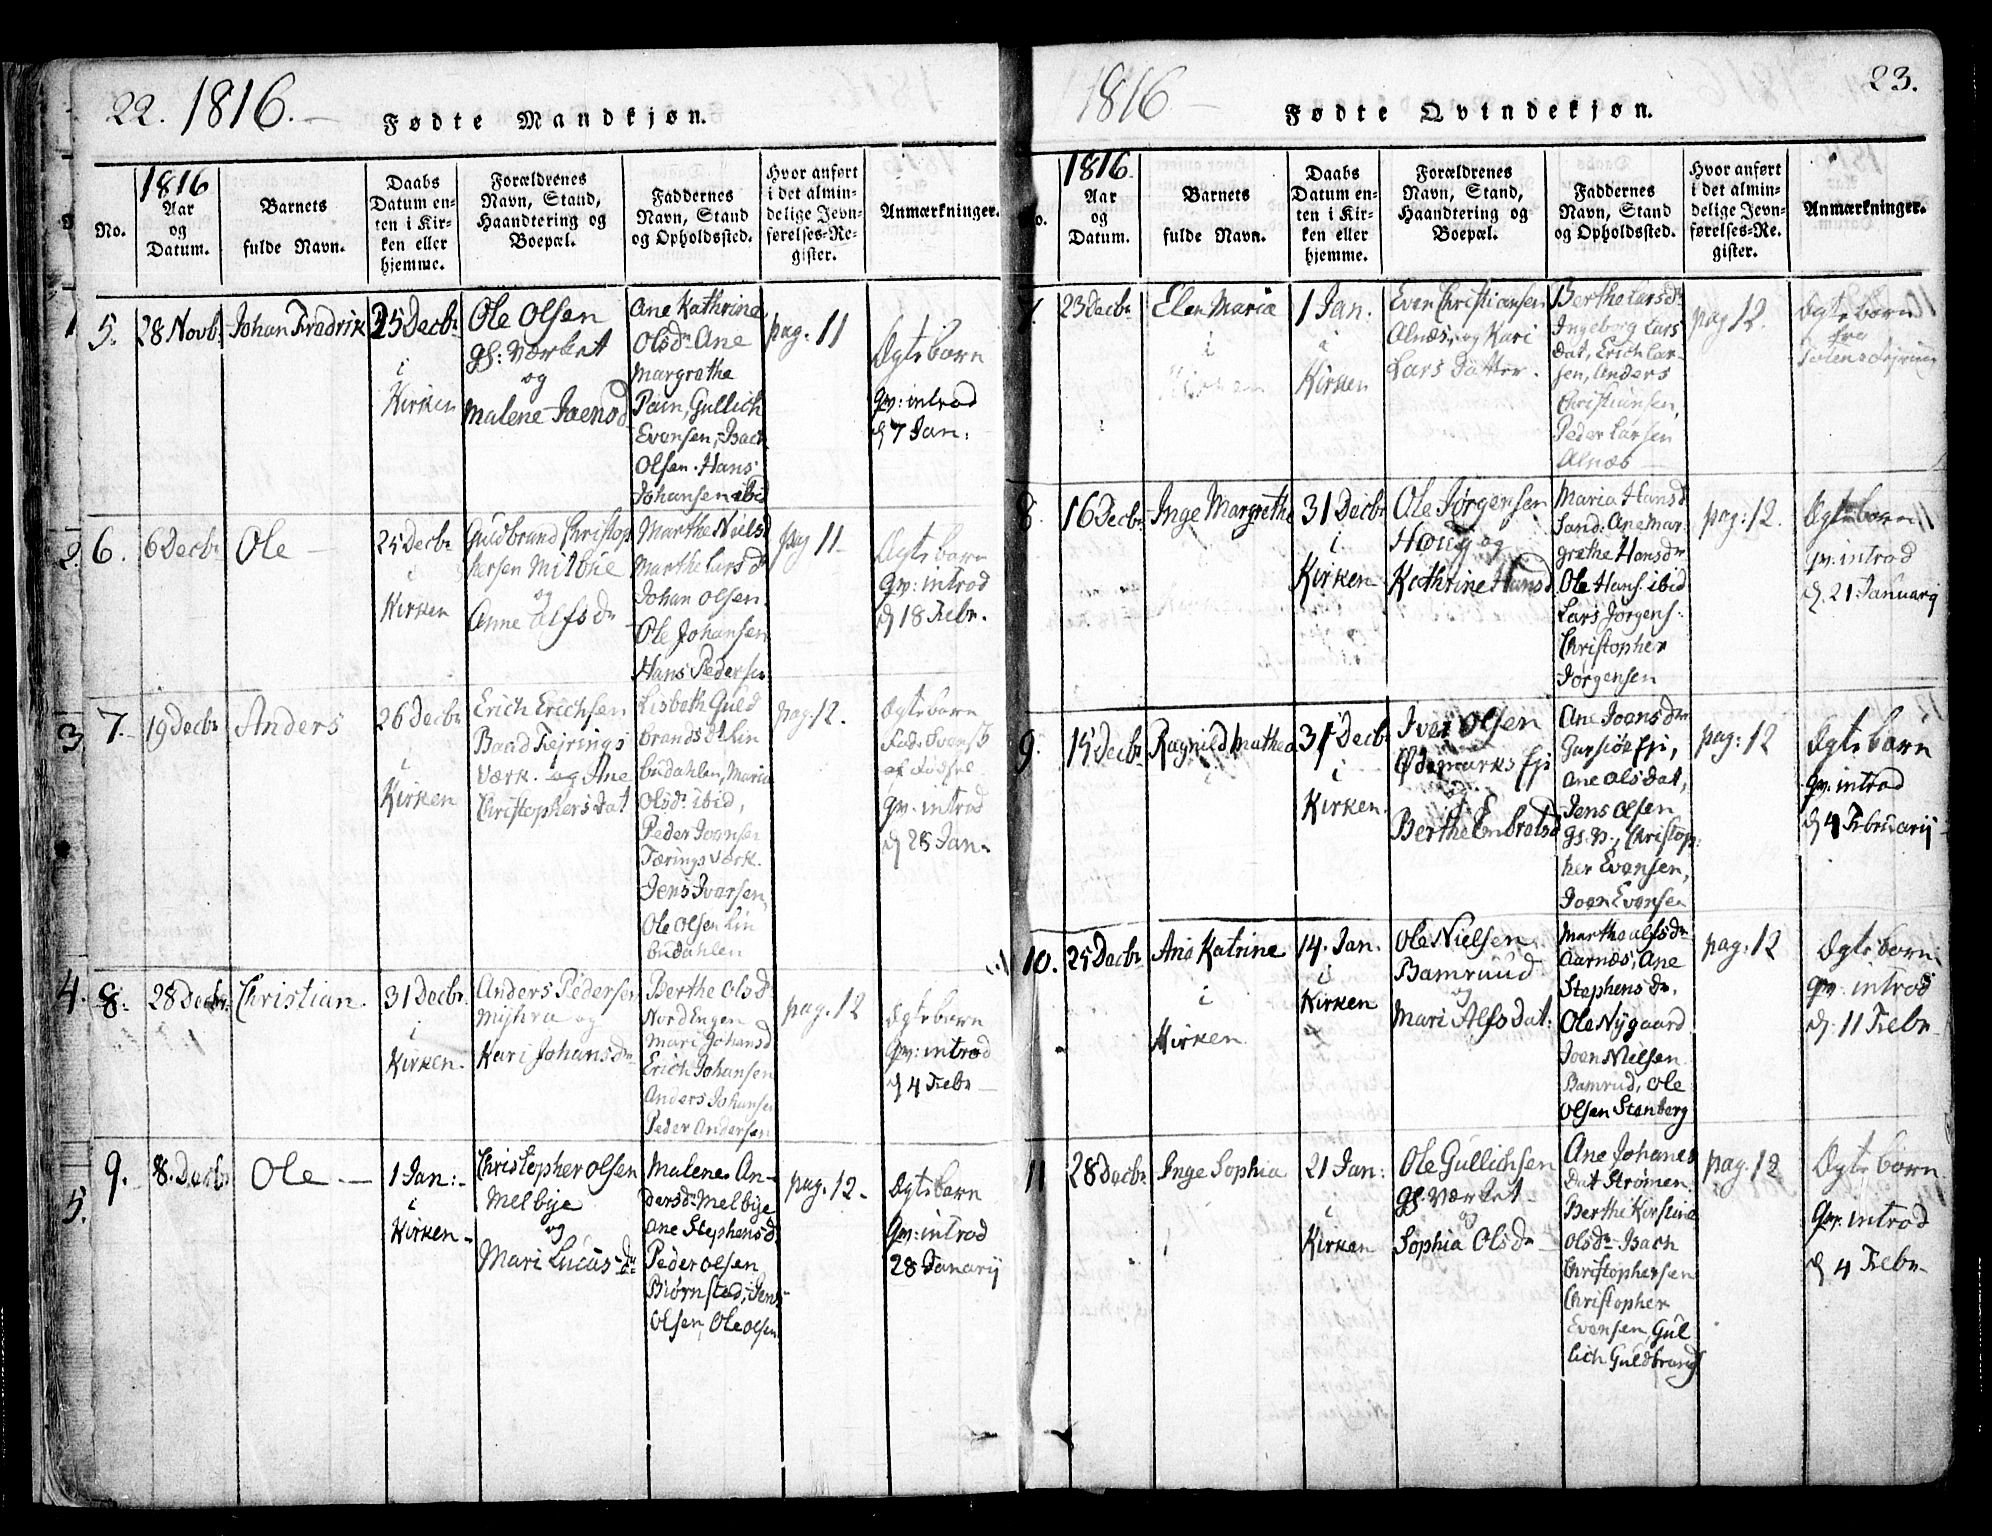 22. 1816.
Fødte Mandkjøn.
1816
No.
Aar
og
Datum.
Barnets
fulde Navn.
Daabs
Datum en-
ten i Kir-
ken eller
hjemme.
Forældrenes
Navn, Stand,
Haandtering og
Boepæl.
Faddernes
Navn, Stand
og Opholdssted.
Hvor anført
i det almin-
delige Jevn-
førelses-Re-
gister.
Anmærkninger.
1
5.
28 Novb.
Johan Fredrik
25 Decbr
i
Kirken
Ole Olsen
gs: Værket
og
Malene Joensd
Ane Kathrine
Olsdr Ane
Margrethe
Pain, Gullich
Evensen, Isach
Olsen. Hans
Johansen ibid
pag. 11
Ægte barn
qv: introd
d 7 Jan:
2.
6.
6 Decbr
Ole
25 Decbr
i
Kirken
Guldbrand Christop
hersen
og
Anne Alfsdr
Marthe Nielsd
Marthe Larsd
Johan Olsen.
Ole Johansen
Hans Pedersen
pag 11
Ægte barn
qv: introd
d 18 Febr.
3
7.
19 Decbr
Anders
26 Decbr
i
Kirken
Erich Erichsen
Baad Fejrings
Værk. og Ane
Christophersdat
Lisbeth Guld
brandsdt Lin
budahlen, Maria
Olsdr ibid,
Peder Joensen
Færings Værk.
Jens Ivarsen,
Ole Olsen Lin
budahlen
pag 12.
Ægte barn
af Fødsel
qv: introd
d 28 Jan.
4.
8.
28 Decbr.
Christian.
31 Decbr.
i
Kirken.
Anders Pedersen
Myhra og
Kari Johansdr
Berthe Olsd
Nordengen
Mari Johansd
Erich Johansen
Anders Johansen
Peder Andersen
pag. 12
Ægte barn
qv: introd
d 4 Febr
5.
9.
8. Decbr
Ole
1 Jan:
i
Kirken
Christopher Olsen
Melbye
og
Mari Lucasdr
Malene An-
dersdr Melbye
Ane Stephensd.
Peder Olsen
Biørnstad, Jens
Olsen, Ole Olsen
pag. 12.
Ægte barn
qv: introd
28 Januarij
1816
23.
Fødte Qvindekjøn.
1816.
No.
Aar
og
Datum.
Barnets
fulde Navn.
Daabs
Datum en-
ten i Kir-
ken eller
hjemme.
Forældrenes
Navn, Stand,
Haandtering og
Boepæl.
Faddernes
Navn, Stand
og Opholdssted.
Hvor anført
i det almin-
delige Jevn-
førelses-Re-
gister.
Anmærkninger.
7.
23 Decbr
Elen Maria
i
Kirken
1 Jan.
i
Kirken
Even Christiansen
Alnæs, og Kari
Lars Datter.
Berthe Larsdr
Ingeborg Lars
dat, Erich Lar-
sen, Anders
Christiansen,
Peder Larsen
Alnæs
pag 12.
Ægte barn
fra
8.
16 Decbr
Inge Margrethe
31 Decbr
i
Kirken
Ole Jørgensen
Houg og
Kathrine Hansd.
Maria Hansd
Sand. Ane Mar-
grethe Hansdr
Ole Hans: ibid
Lars Jørgens:
Christopher
Jørgensen
pag: 12.
Ægte barn
qv. introd
d. 21 Januarij
9.
15 Decbr
Ragnild Mathea
i
31 Decbr
i
Kirken.
Iver Olsen
Ødemarks Eji
og
Berthe Embretsd
Ane Joensdr
Garsiøe Eji,
Ane Olsdat,
Jens Olsen
gs. V., Christop-
her Evensen,
Joen Evensen
pag: 12
Ægte barn
qv. introd
d 4 Februarij
10.
25 Decbr
Ane Katrine
i
Kirken
14. Jan.
i
Kirken
Ole Nielsen
Bamruud
og
Mari Alfsdat:
Marthe Alfsdr
Aarnæs, Ane
Stephensdr.
Ole Nygaard
Joen Nielsen
Bamrud, Ole
Olsen Stenberg
pag: 12
Ægte barn
qv. introd
d: 11 Febr
11
28 Decbr
Inge Sophia
21 Jan:
i
Kirken
Ole Gullichsen
gs. Værket
og
Sophia Olsdr
Ane Johanes
dat Strømen
Berthe Kirstine
Olsdr Isach
Christophersen
Christopher
Evensen, Gul
lich Guldbrands
pag. 12
Ægte barn
qv. introd
d 4 Febr